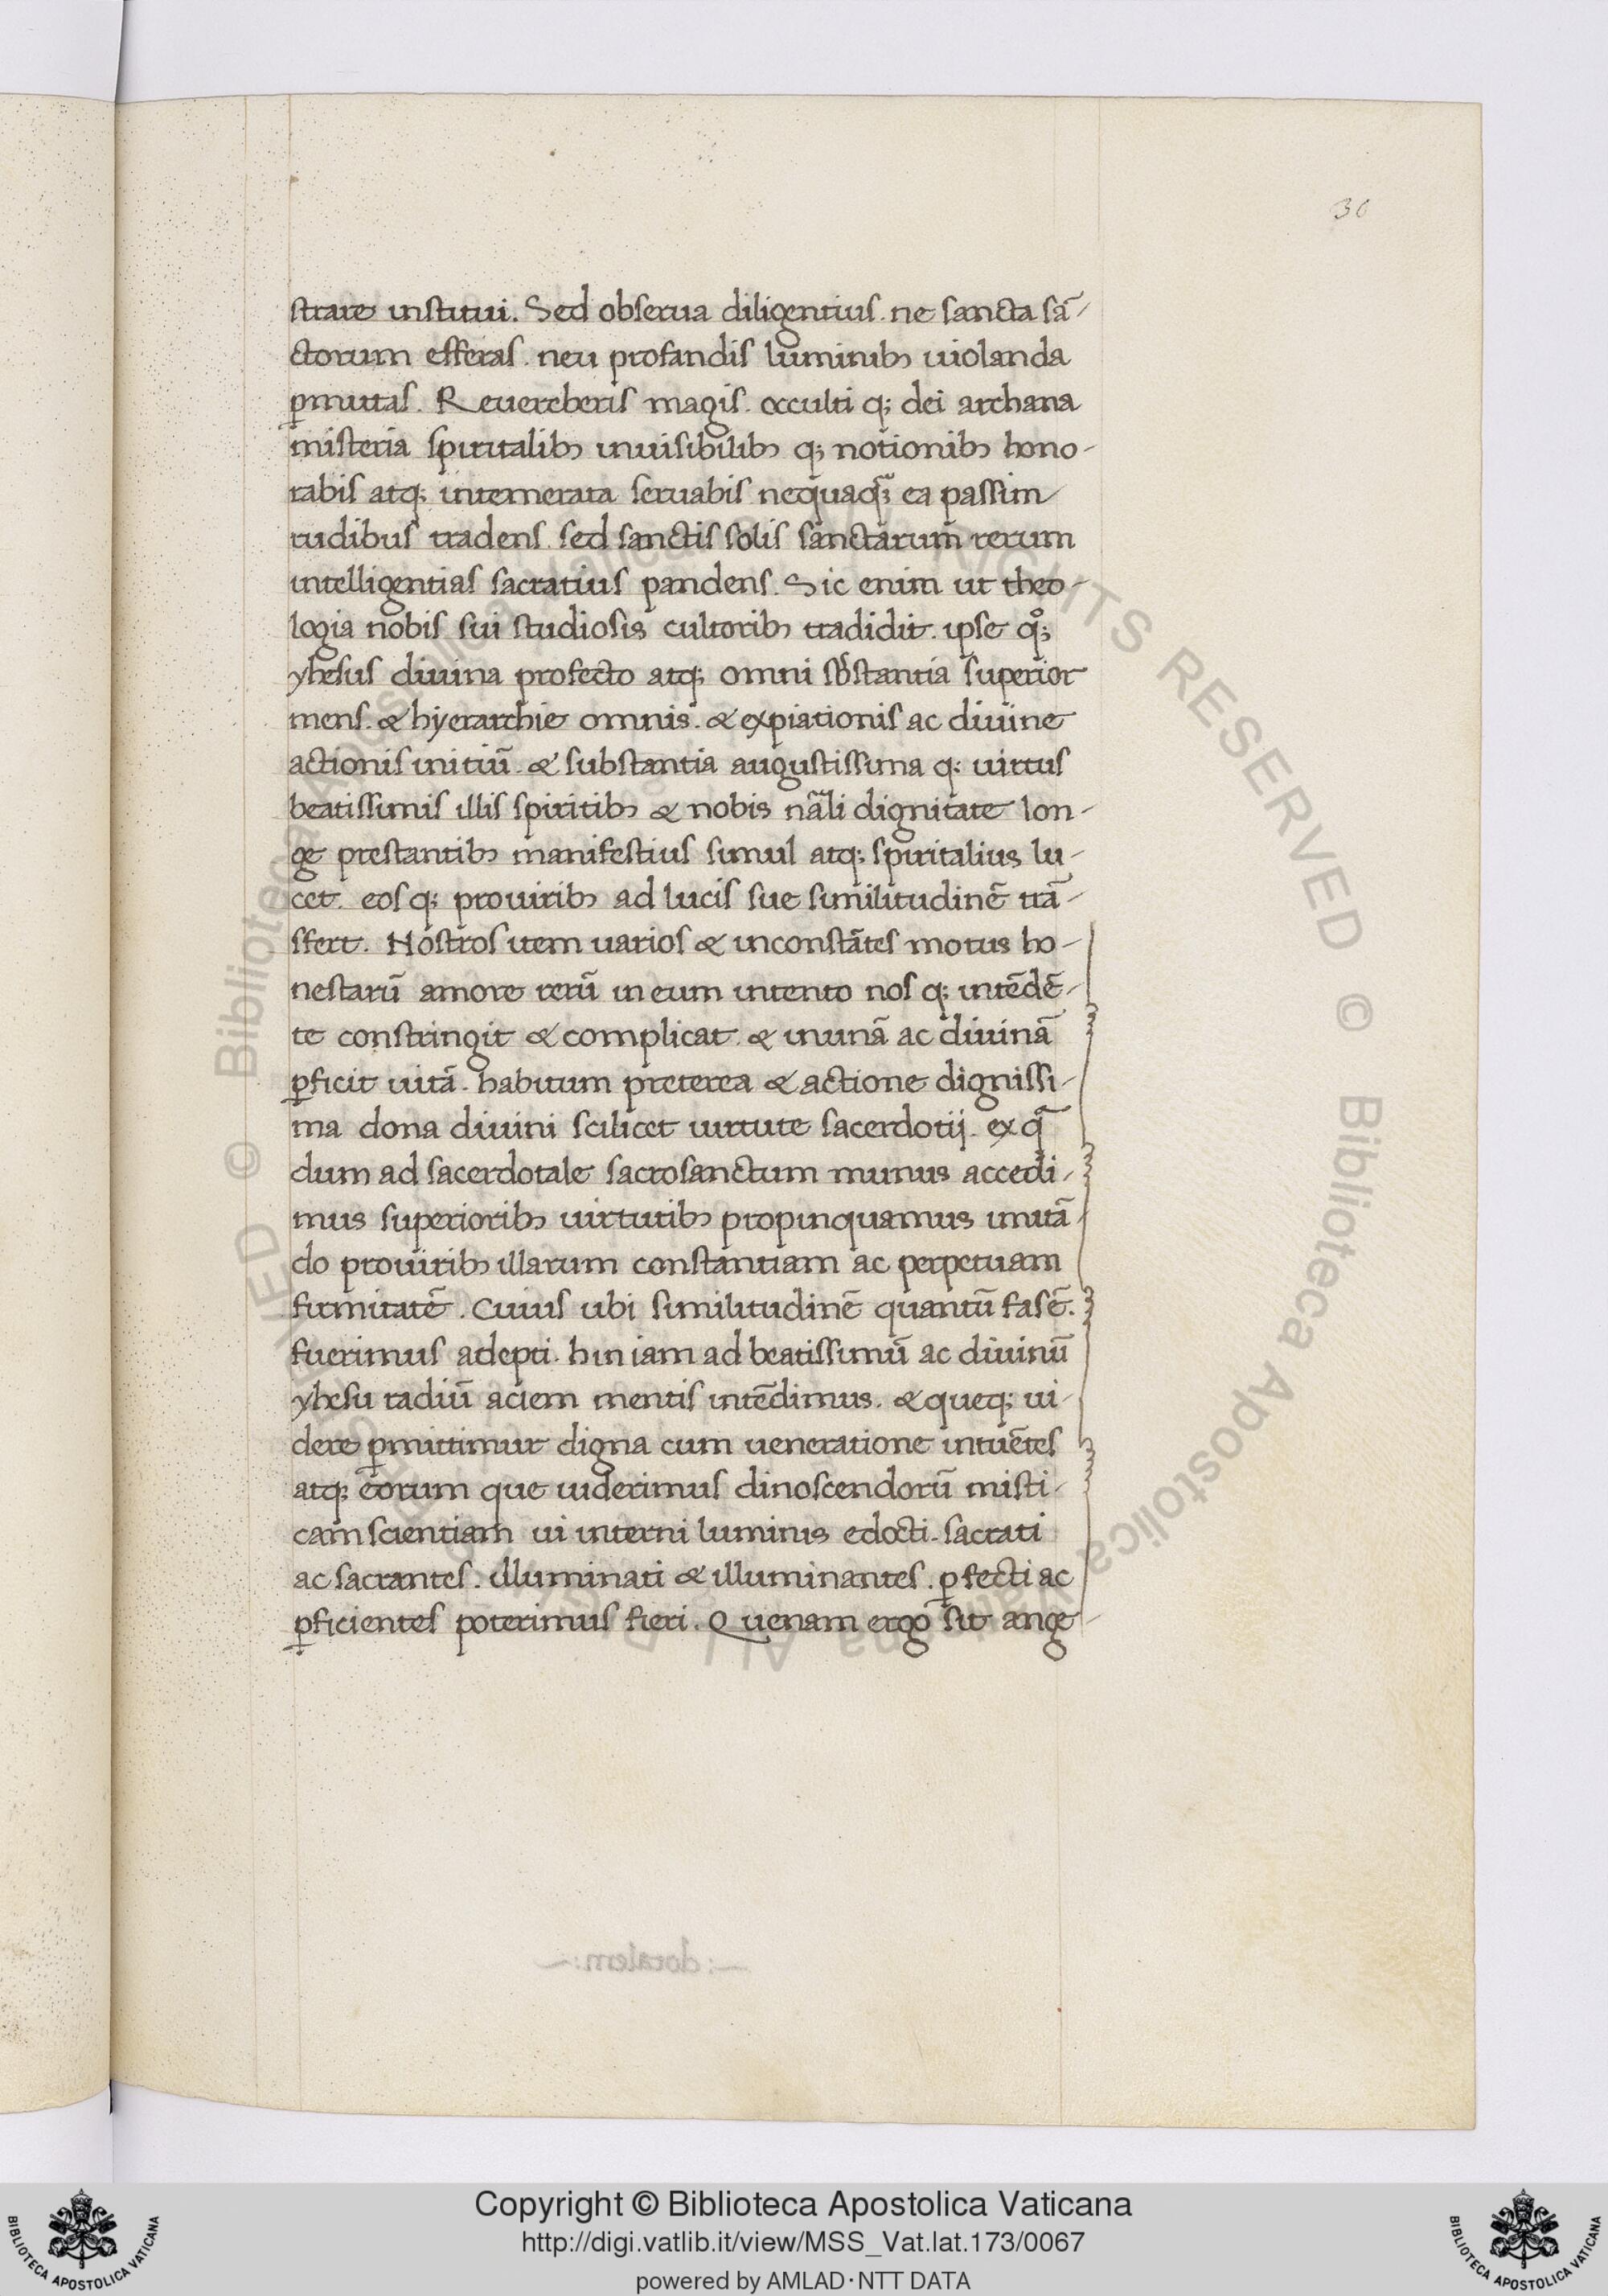 30
strare institui. Sed obserua diligentius. ne sancta sā-
ctorum efferas. neu profandis luminibꝫ uiolanda
ꝑmittas. Reuereberis magis. occulti qꝫ dei archana
misteria spiritalibꝫ inuisibilibꝫ qꝫ notionibꝫ hono-
rabis atqꝫ intemerata seruabis nequaqꝫ̃ ea passim
rudibus tradens. sed sanctis solis sanctarum rerum
intelligentias sacratius pandens. Sic enim ut theo-
logia nobis sui studiosis cultoribꝫ tradidit. ipse qͦꝫ
yhesus diuina profecto atqꝫ omni sb̄stantia superior
mens. & hyerarchie omnis. & expiationis ac diuine
actionis initiū. & substantia augustissima qꝫ uirtus
beatissimis illis spiritibꝫ & nobis nāli dignitate lon-
ge prestantibꝫ manifestius simul atqꝫ spiritalius lu-
cet. eos qꝫ prouiribꝫ ad lucis sue similitudinē trā-
sfert. Nostros item uarios & inconstātes motus ho-
nestarū amore rerū in eum intento nos qꝫ intēdē-
te constringit & complicat. & inunā ac diuinā
ꝑficit uitā. habitum preterea & actione dignissi-
ma dona diuini scilicet uirtute sacerdotij. ex qͣ
dum ad sacerdotale sacrosanctum munus accedi-
mus superioribꝫ uirtutibꝫ propinquamus imitā-
do prouiribꝫ illarum constantiam ac perpetuam
firmitatē. Cuius ubi similitudinē quantū fasē.
fuerimus adepti. hin iam ad beatissimū ac diuinū
yhesu radiū aciem mentis intēdimus. & queqꝫ ui-
dere ꝑmittimur digna cum ueneratione intuētes
atqꝫ eorum que uiderimus dinoscendorū misti-
cam scientiam ui interni luminis edocti. sacrati
ac sacrantes. illuminati & illuminantes. ꝑfecti ac
ꝑficientes poterimus fieri. Quenam ergo sit ange-
dotalem
Copyright © Biblioteca Apostolica Vaticana
http://digi.vatlib.it/view/MSS_Vat.lat.173/0067
powered by AMLAD·NTT DATA